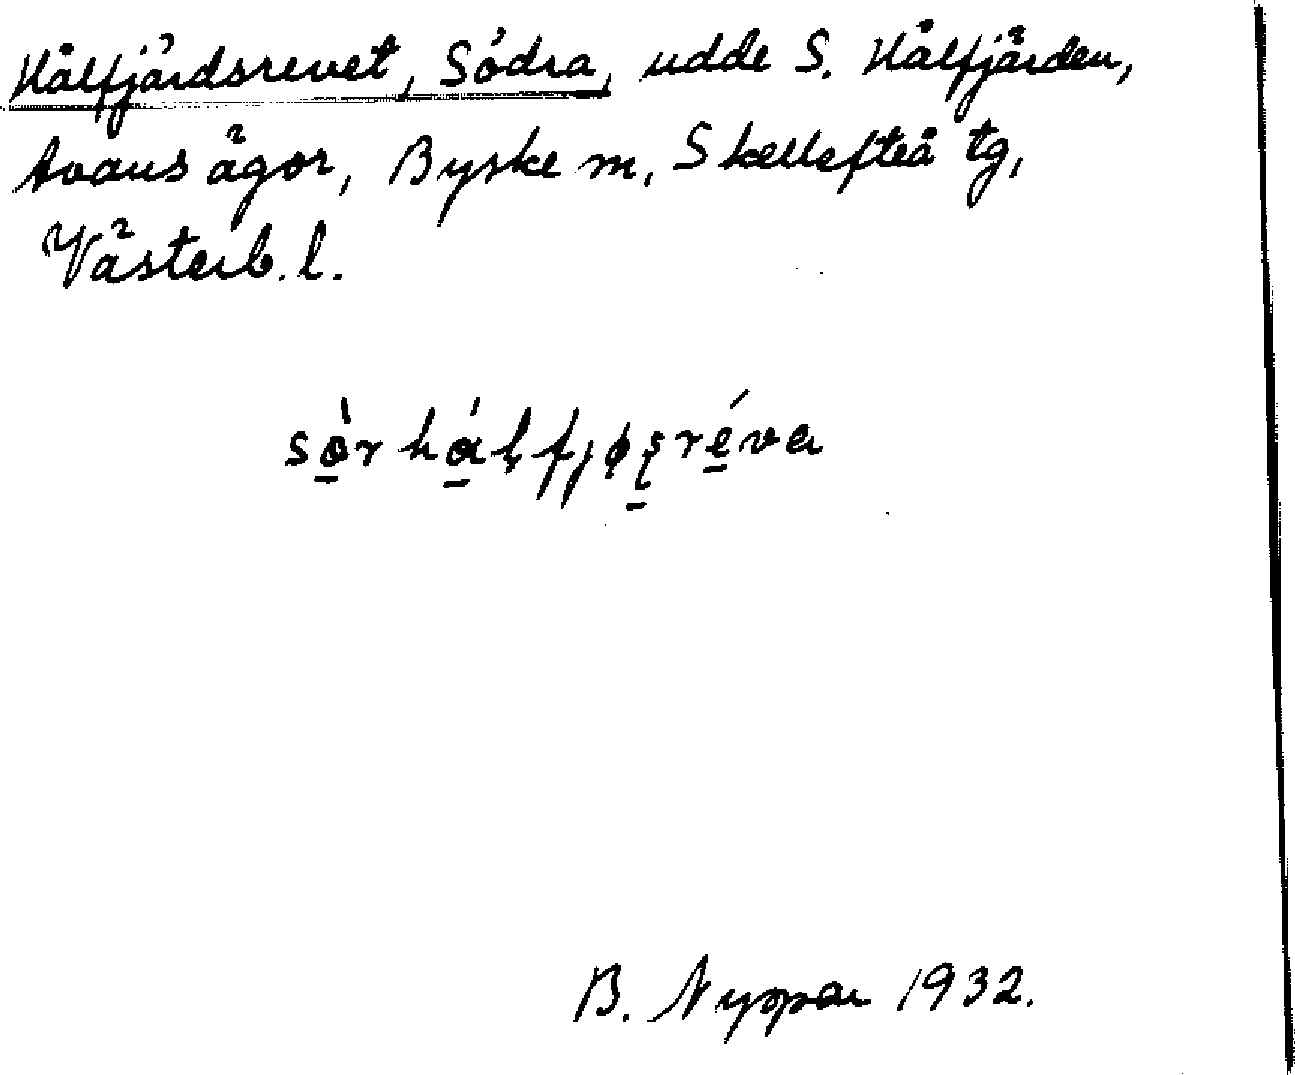 Hålfjärdsrevet, Södra, udde S. Hålfjärden,
Avans ägor, Byske m, Skellefteå tg,
Västerb. l.
sòrhálfjøʂréva
B. Nyman 1932.